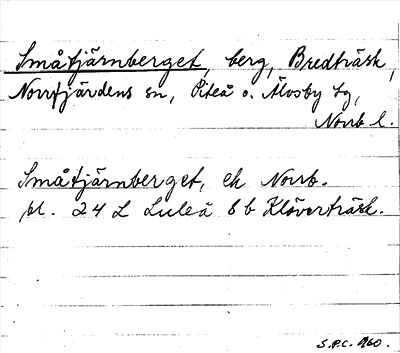 Småtjärnberget, berg, Bredträsk,
Norrfjärdens sn, Piteå o. Älvsby tg,
Norrb l.
Småtjärnberget, ek Norrb.
bl. 24 L Luleå 8b Klöverträsk.
S.P.C. 1960.